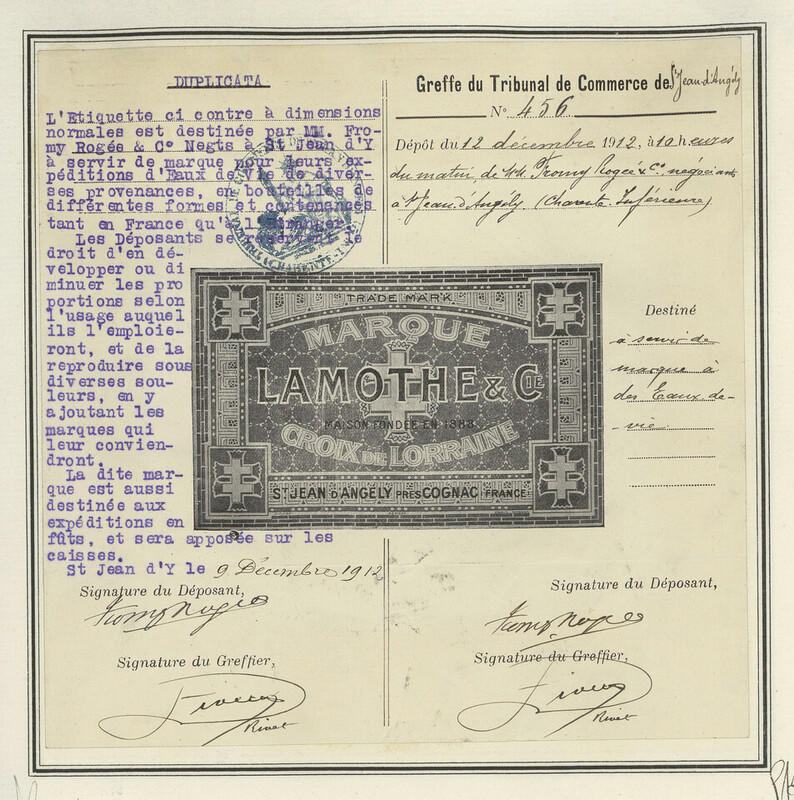 DUPLICATA
L'Etiquette ci contre à dimensions
normales est destinée par MM. Fro-
my Rogée & C° Negts à St Jean d'Y
à servir de marque pour leurs ex-
péditions d'Eaux de Vie de diver-
ses provenances, en bouteilles de
différentes formes et contenances
tant en France qu'à l'Etranger.
Les Déposants se réservent le
droit d'en dé-
velopper ou di
minuer les pro
portions selon
l'usage auquel
ils l'emploie-
ront, et de la
reproduire sous
diverses sou-
leurs, en y
ajoutant les
marques qui
leur convien-
dront.
La dite mar-
que est aussi
destinée aux
expéditions en
fûts, et sera apposée sur les
caisses.
St Jean d'Y le 9 Décembre 1912
Signature du Déposant,
Fromy Rogée
Signature du Greffier,
Rivet
Greffe du Tribunal de Commerce de St Jean d'Angély
N° 456
Dépôt du 12 décembre 1912, à 10 heures
du matin, de MM. Fromy Rogée & C° négociants
à St Jean d'Angély (Charente-Inférieure)
TRADE MARK
MARQUE
LAMOTHE & CIE
MAISON FONDÉE EN 1883
CROIX DE LORRAINE
ST JEAN D'ANGELY PRÈS COGNAC (FRANCE)
Destiné
à servir de
marque à
des Eaux-de-
-vie
Signature du Déposant,
Fromy Rogée
Signature du Greffier,
Rivet